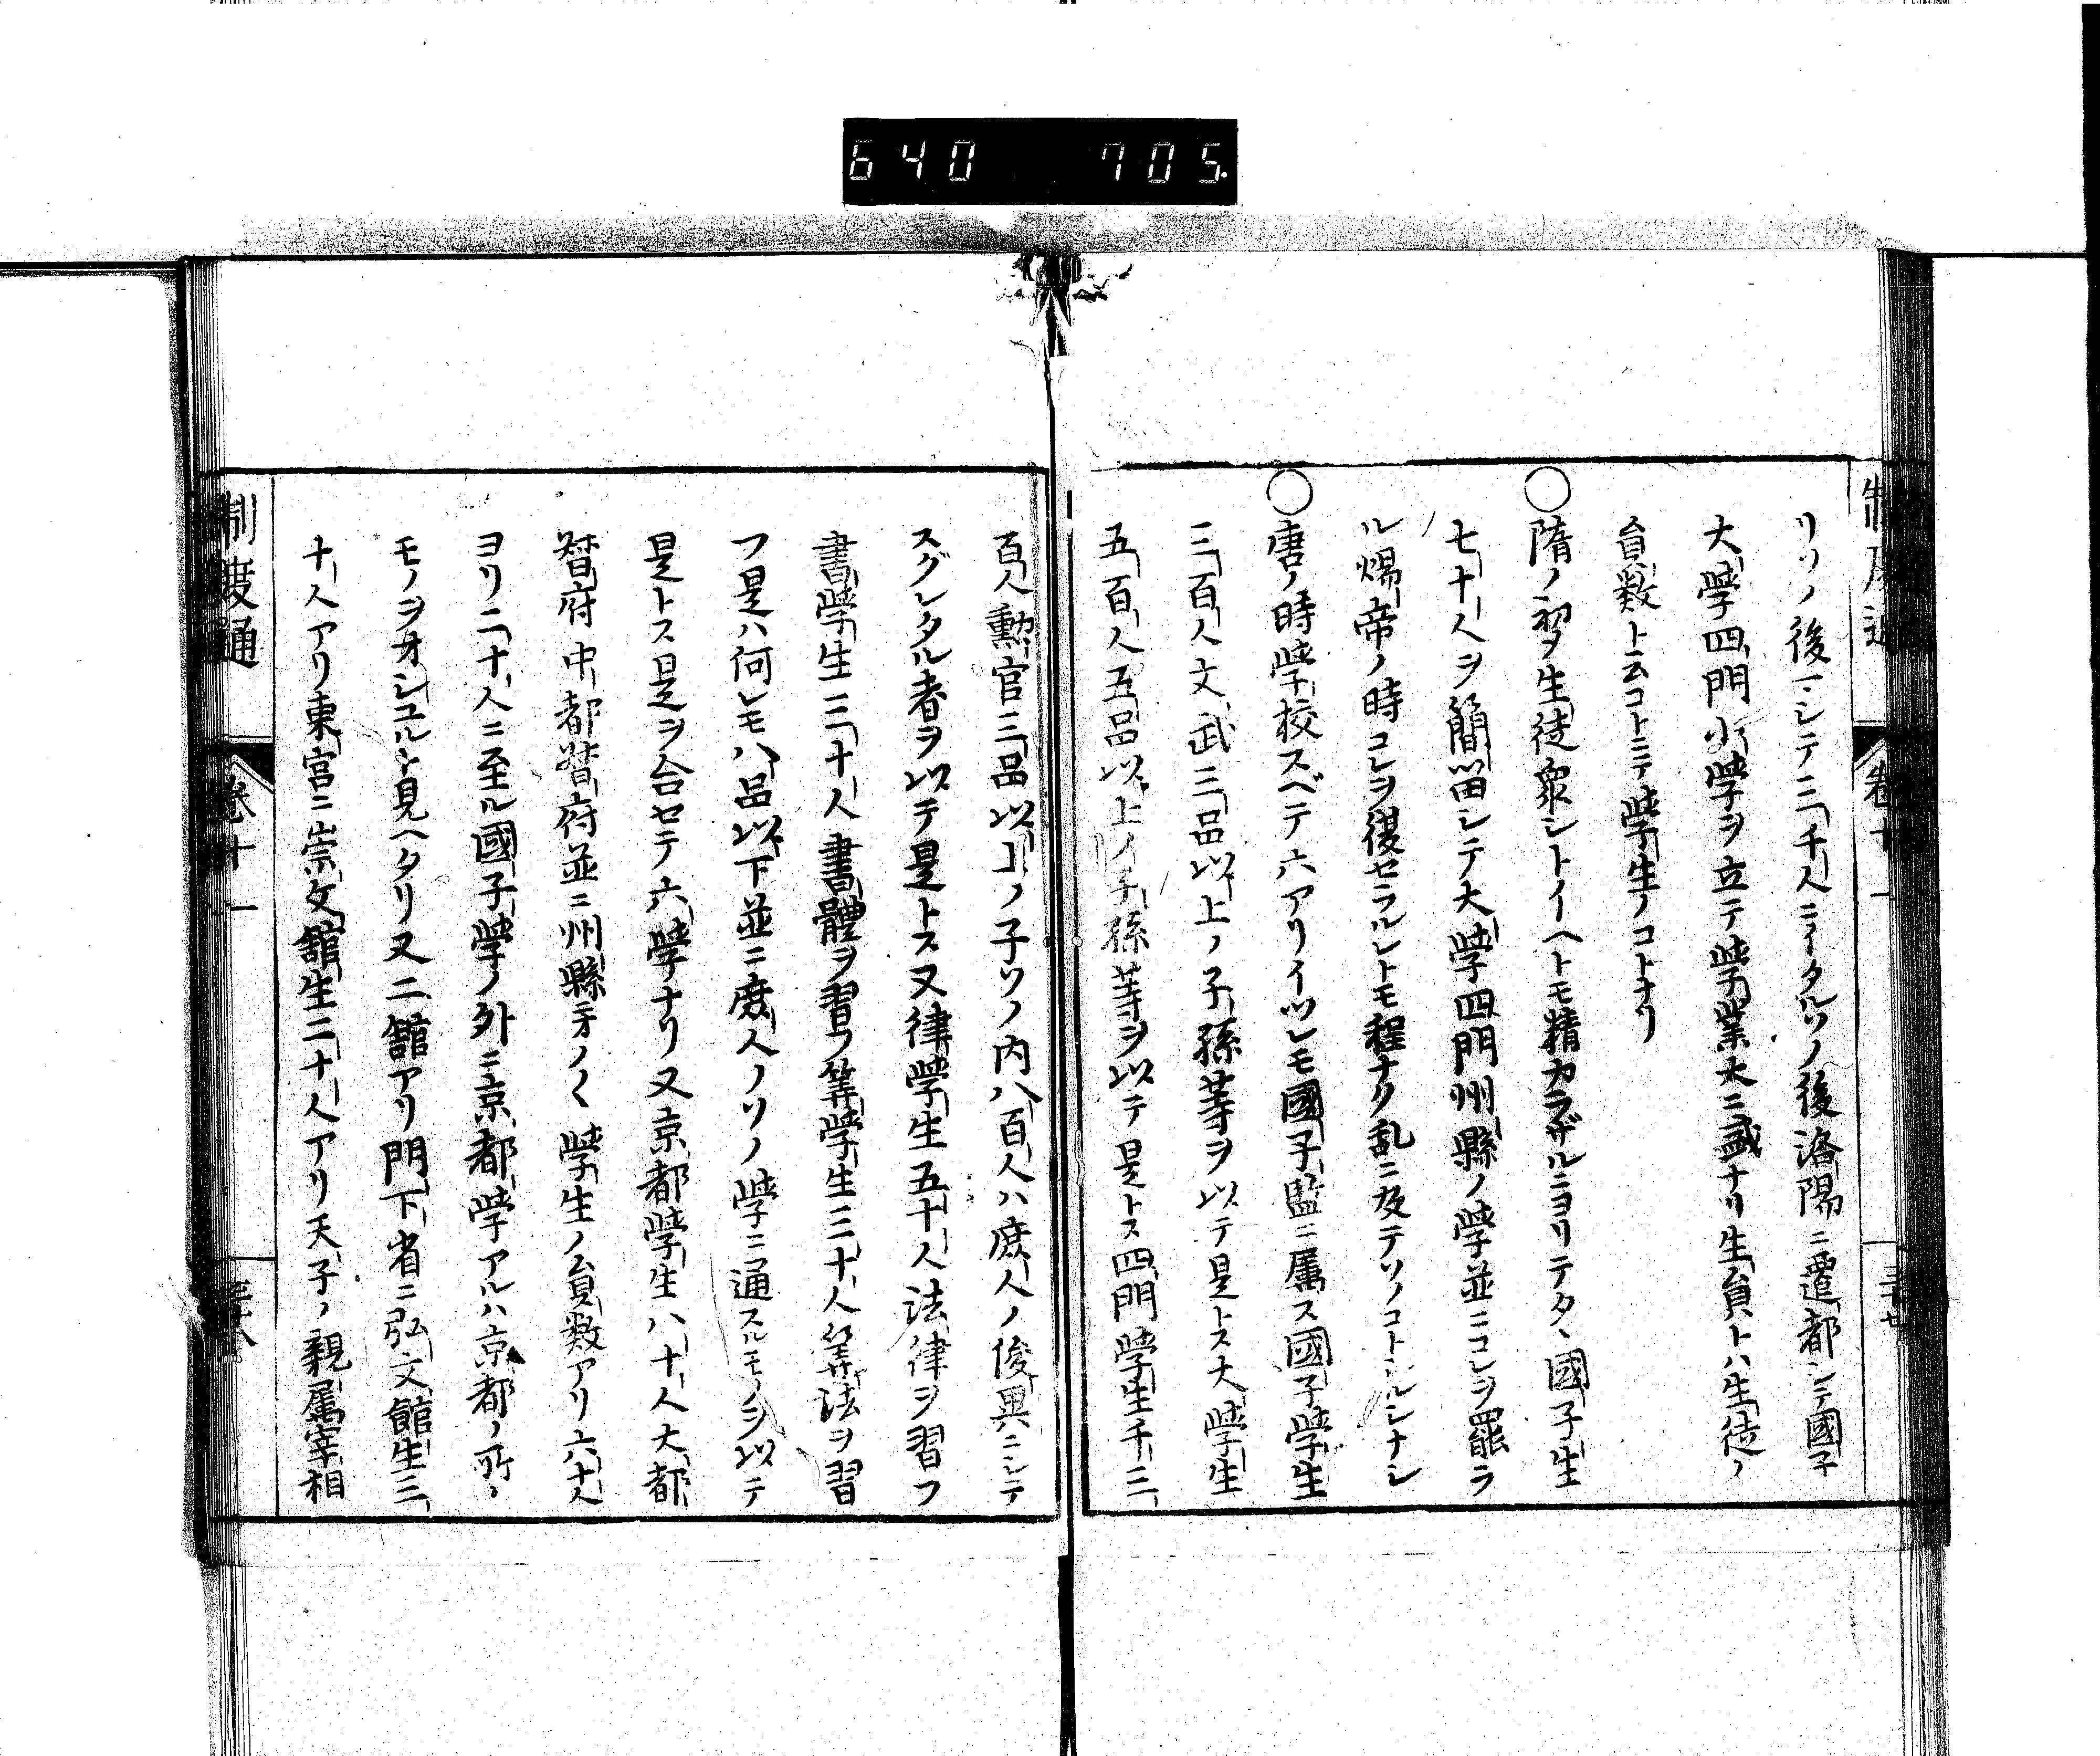 640 705.
制度通 卷十一 三十七
リソノ後マシテ三千人ニイタルソノ後洛陽ニ遷都シテ國子
大學四門小學ヲ立テ學業大ニ盛ナリ生員トハ生徒ノ
員数ト云コトニテ學生ノコトナリ
○隋ノ初メ生徒衆シトイヘトモ精カラザルニヨリテタヽ國子生
七十人ヲ簡畄シテ大學四門州縣ノ學並ニコレヲ罷ラ
ル煬帝ノ時コレヲ復セラルレトモ程ナク乱ニ及テソノコトシルシナシ
○唐ノ時學校スベテ六アリイツレモ國子監ニ属ス國子學生
三百人文武三品以上ノ子孫等ヲ以テ是トス大學生
五百人五品以上ノ子孫等ヲ以テ是トス四門學生千三
百人勲官三品以上ノ子ソノ内八百人ハ庶人ノ俊異ニシテ
スグレタル者ヲ以テ是トス又律學生五十人法律ヲ習フ
書學生三十人書體ヲ習フ筭學生三十人筭法ヲ習
フ是ハ何レモ八品以下並ニ庶人ノソノ學ニ通スルモノヲ以テ
是トス是ヲ合セテ六學ナリ又京都學生八十人大都
督府中都督府並ニ州縣ヲノ〱學生ノ員数アリ六十人
ヨリ二十人ニ至ル國子學ノ外ニ京都學アルハ京都ノ所ノ
モノヲオシユルト見ヘタリ又二舘アリ門下省ニ弘文館生三
十人アリ東宮ニ崇文舘生二十人アリ天子ノ親属宰相
制度通 卷十一 三十八